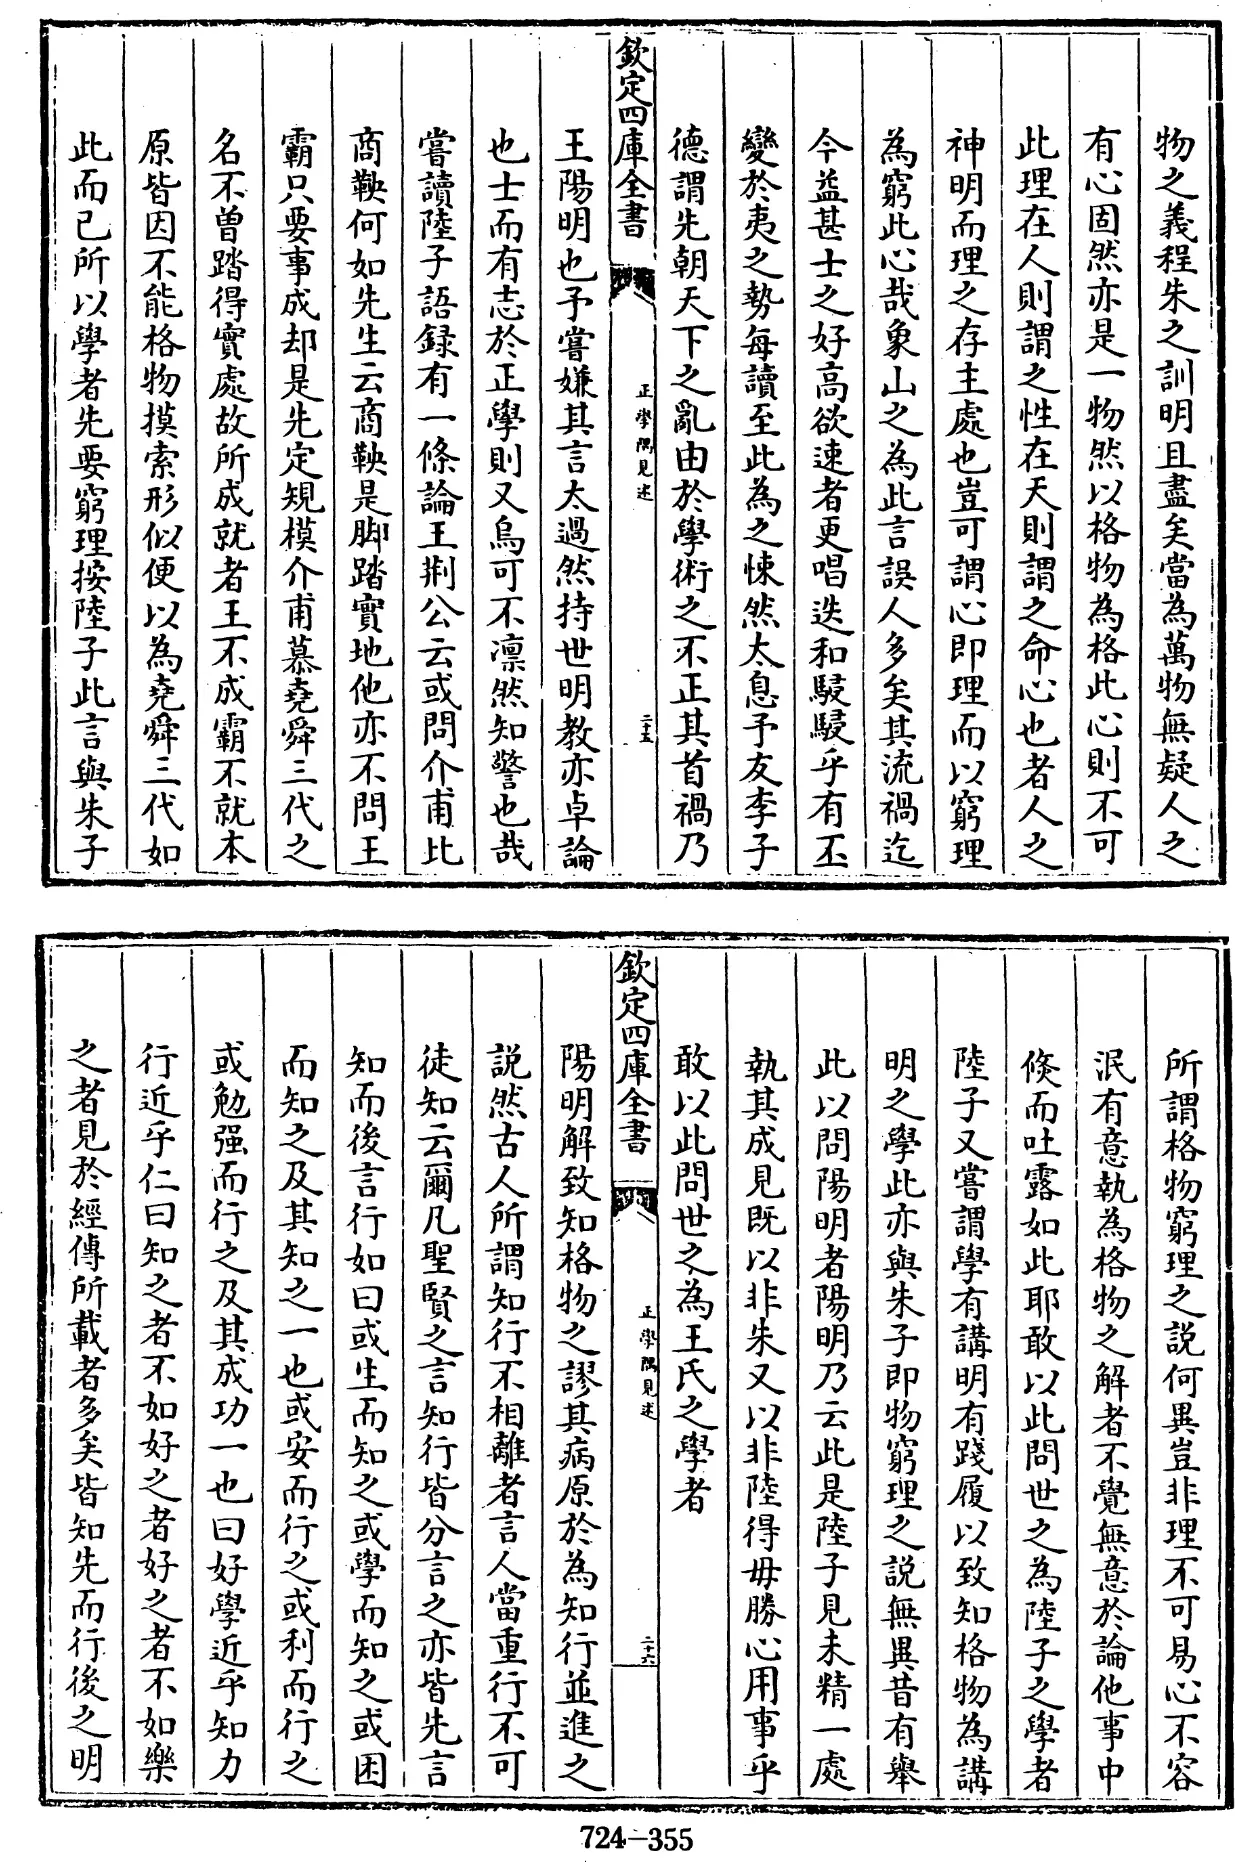 物之義程朱之訓明且盡矣當為萬物無疑人之
有心固然亦是一物然以格物為格此心則不可
此理在人則謂之性在天則謂之命心也者人之
神明而理之存主處也豈可謂心即理而以窮理
為窮此心哉象山之為此言誤人多矣其流禍迄
今益甚士之好高欲速者更唱迭和駸駸乎有丕
變於夷之勢每讀至此為之悚然太息予友李子
德謂先朝天下之亂由於學術之不正其首禍乃
欽定四庫全書
正學隅見述
二十五
王陽明也予嘗嫌其言太過然持世明教亦卓論
也士而有志於正學則又烏可不凛然知警也哉
嘗讀陸子語錄有一條論王荆公云或問介甫比
商鞅何如先生云商鞅是脚踏實地他亦不問王
霸只要事成却是先定規模介甫慕堯舜三代之
名不曾踏得實處故所成就者王不成霸不就本
原皆因不能格物摸索形似便以為堯舜三代如
此而已所以學者先要窮理按陸子此言與朱子
所謂格物窮理之説何異豈非理不可易心不容
泯有意執為格物之解者不覺無意於論他事中
倐而吐露如此耶敢以此問世之為陸子之學者
陸子又嘗謂學有講明有踐履以致知格物為講
明之學此亦與朱子即物窮理之説無異昔有舉
此以問陽明者陽明乃云此是陸子見未精一處
執其成見既以非朱又以非陸得毋勝心用事乎
敢以此問世之為王氏之學者
欽定四庫全書
正學隅見述
二十六
陽明解致知格物之謬其病原於為知行並進之
説然古人所謂知行不相離者言人當重行不可
徒知云爾凡聖賢之言知行皆分言之亦皆先言
知而後言行如曰或生而知之或學而知之或困
而知之及其知之一也或安而行之或利而行之
或勉强而行之及其成功一也曰好學近乎知力
行近乎仁曰知之者不如好之者好之者不如樂
之者見於經傳所載者多矣皆知先而行後之明
724-355